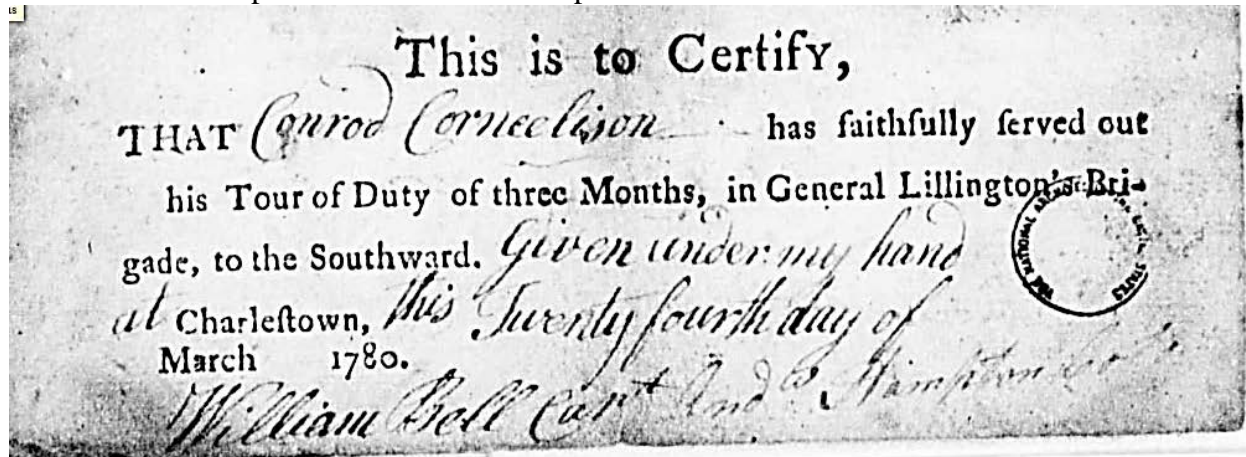 This is to Certify,
THAT Conrod Corneelison has faithfully ſerved out
his Tour of Duty of three Months, in General Lillington's Bri-
gade, to the Southward. Given under my hand
at Charleſtown, this Twenty fourth day of
March 1780.
William Bell Capt And. Hampton